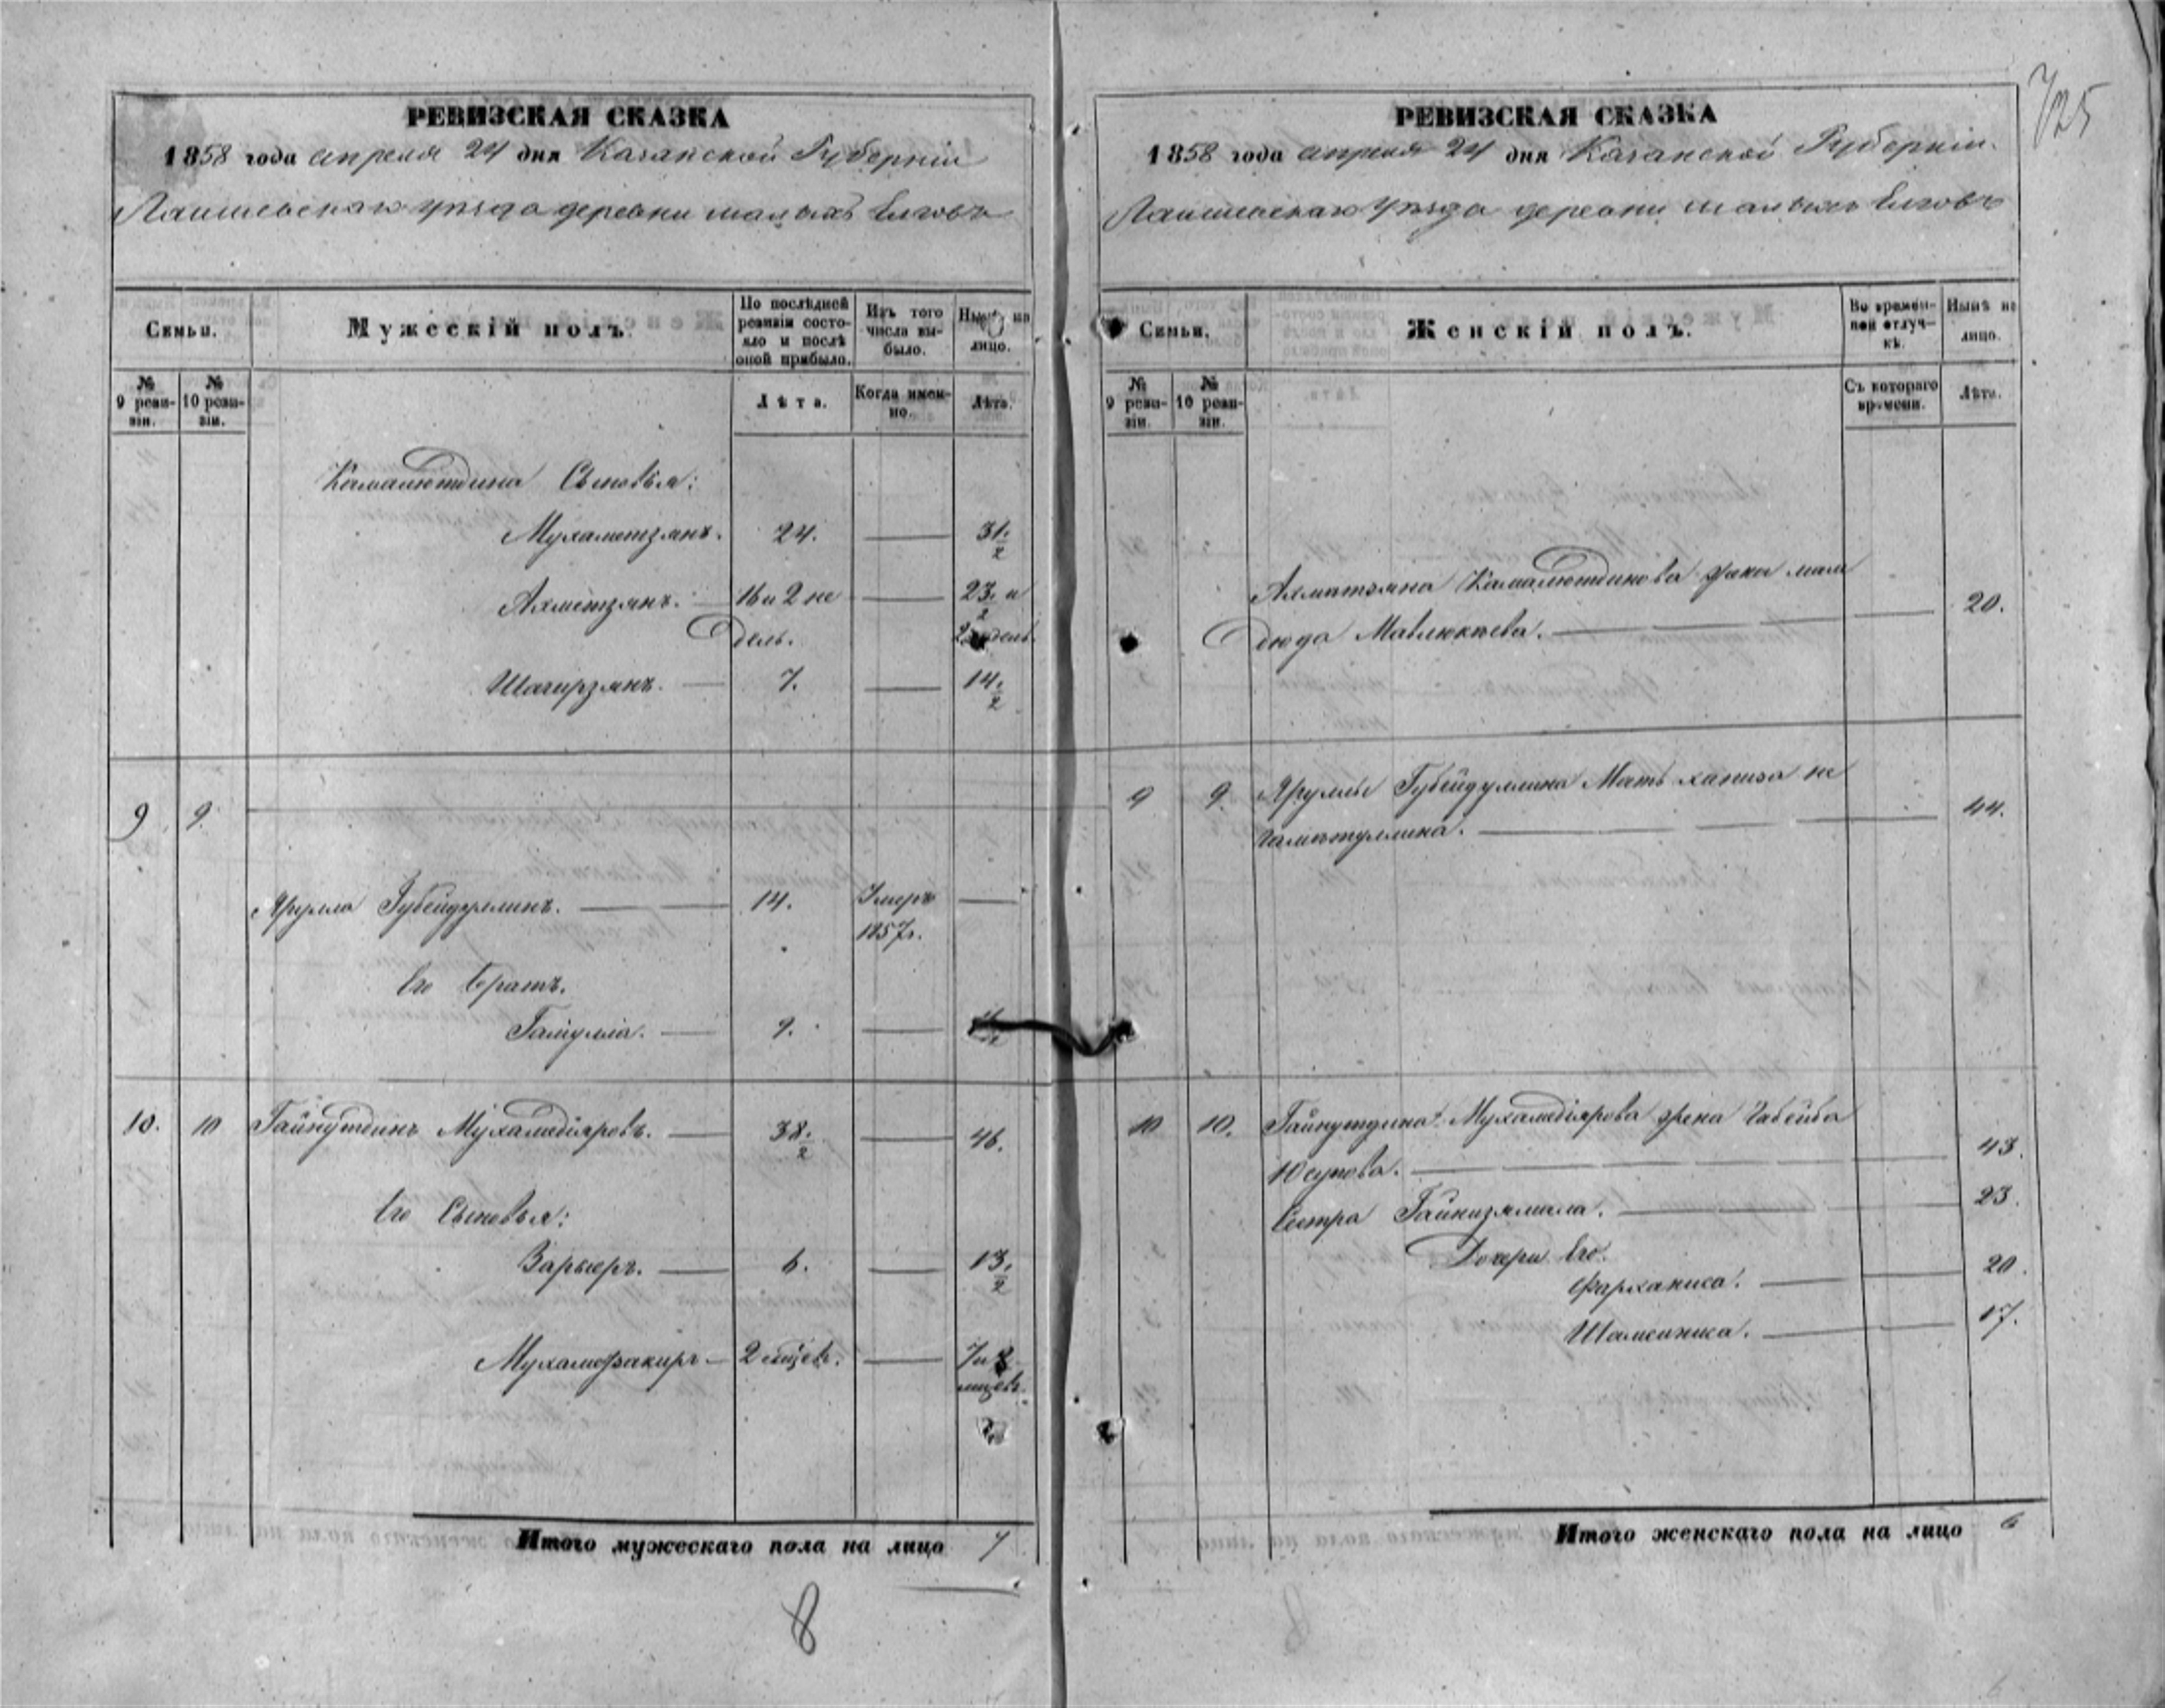 725
РЕВИЗСКАЯ СКАЗКА
1858 года апреля 24 дня Казанской Губерніи
Лаишевскаго уѣзда деревни малыхъ Елговъ
Семьи.
Мужескій полъ.
По послѣдней ревизіи состояло и послѣ оной прибыло.
Изъ того числа выбыло.
Нынѣ на лицо.
№ 9 ревизіи.
№ 10 ревизіи.
Лѣта.
Когда именно.
Лѣта.
Камалютдина Сыновья:
Мухаметзянъ. 24. 31.½
Ахметзянъ. 16 и 2 не 23.½ и
дель. 2 недель.
Шагирзянъ. 7. 14.½
9 9.
Ярулла Губейдуллинъ. 14. Умеръ
1857г.
Его братъ.
9.
10. 10 Гайнутдинъ Мухамедіяровъ. 38.½ 46.
Его Сыновья:
6. 13.½
Мухамефакиръ 2 мѣсяц. 7 и
Итого мужескаго пола на лицо 7
8
РЕВИЗСКАЯ СКАЗКА
1858 года апреля 24 дня Казанской Губерніи.
Лаишевскаго Уѣзда деревни малыхъ Елговъ
Семьи.
Женскій полъ.
Во временной отлучкѣ.
Нынѣ на лицо.
№ 9 ревизіи.
№ 10 ревизіи.
Съ котораго времени.
Лѣта.
Ахметзяна Камалютдинова жена мам
дюда Мавлюкаева. 20.
9 9. Яруллы Губейдуллина Мать ханиза не
гаматуллина. 44.
10 10. Гайнутдина Мухамедіярова жена Габейба
Юсупова. 43.
Сестра Гайнизямала. 23.
Дочери Его.
Фарханиса. 20.
Шамсиниса. 17.
Итого женскаго пола на лицо 6